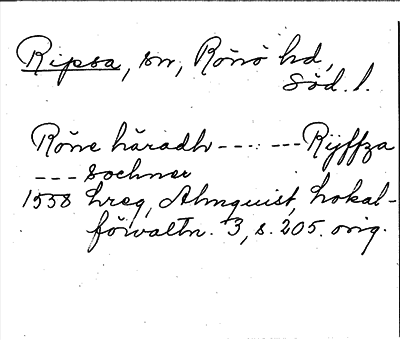 Ripsa, sn, Rönö hd,
Söd. l.
Röne häradh ---- --- Rijffza
--- sochner
1558 hreg, Almquist, Lokal-
förvaltn. 3, s. 205. orig.